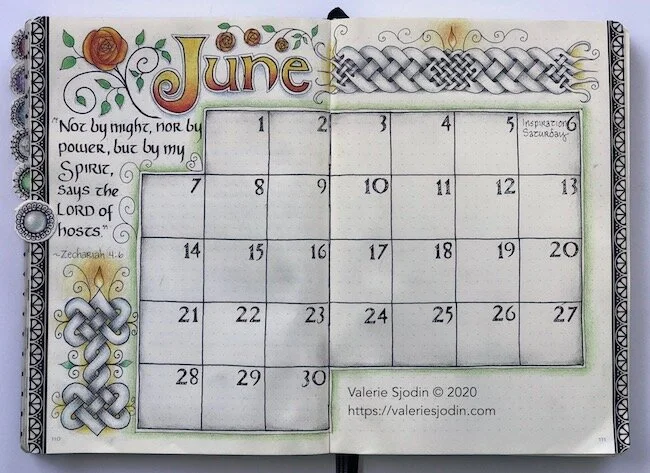 June
"Not by might, nor by
power, but by my
Spirit,
says the
LORD of
hosts."
~Zechariah 4:6
1 2 3 4 5 6
Inspiration
Saturday
7 8 9 10 11 12 13
14 15 16 17 18 19 20
21 22 23 24 25 26 27
28 29 30
Valerie Sjodin © 2020
https://valeriesjodin.com
110
111